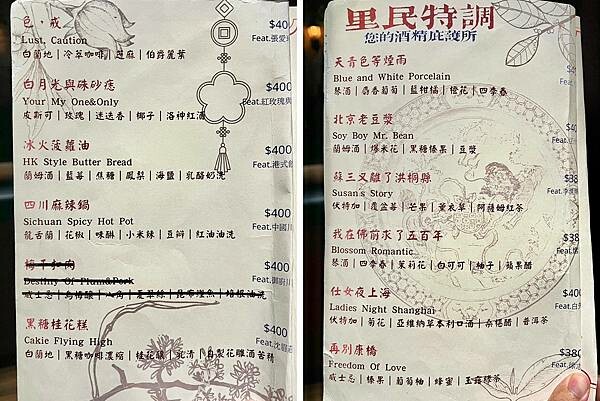 色，戒
$40
Lust, Caution
Feat.張愛
白蘭地｜冷萃咖啡｜芝麻｜伯爵麗葉
白月光與硃砂痣
$400
Your My One&Only
Feat.紅玫瑰與
皮斯可｜玫瑰｜迷迭香｜椰子｜洛神紅酒
冰火菠蘿油
$400
HK Style Butter Bread
Feat.港式
蘭姆酒｜藍莓｜焦糖｜鳳梨｜海鹽｜乳酪奶洗
四川麻辣鍋
$400
Sichuan Spicy Hot Pot
Feat.中國川
龍舌蘭｜花椒｜味醂｜小米辣｜豆瓣｜紅油油洗
梅干扣肉
$400
Destiny Of Plum&Pork
Feat.御廚
威士忌｜烏梅釀｜八角｜
黑糖桂花糕
$400
Cakie Flying High
Feat.沈
白蘭地｜黑糖咖啡濃縮｜桂花釀｜乳清｜自製花雕酒苦精
里民特調
您的酒精庇護所
天青色等煙雨
Blue and White Porcelain
琴酒｜麝香葡萄｜藍柑橘｜橙花｜四季春
北京老豆漿
Soy Boy Mr. Bean
蘭姆酒｜爆米花｜黑糖榛果｜豆漿
蘇三又離了洪桐縣
Susan's Story
伏特加｜覆盆莓｜芒果｜薰衣草｜阿薩姆紅茶
我在佛前求了五百年
$38
Blossom Romantic
Feat.
琴酒｜四季春｜茉莉花｜白可可｜柚子｜蘋果醋
仕女夜上海
$400
Ladies Night Shanghai
Feat.白
伏特加｜菊花｜亞維納草本利口酒｜桑椹醋｜普洱茶
再別康橋
$380
Freedom Of Love
Feat.
威士忌｜榛果｜葡萄柚｜蜂蜜｜玉露綠茶